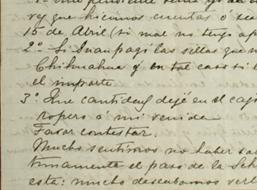 rey que hicimos cuentas ó
15 de Abril (si mal no tengo
2º Si Juan pagó las sillas que
Chihuahua y en tal caso si
el importe
3º Que cantidad dejé en el caj
ropero á mi venida
Favor contestar.
Mucho sentimos no haber
tunamente el paso de la
esta: mucho deseabamos